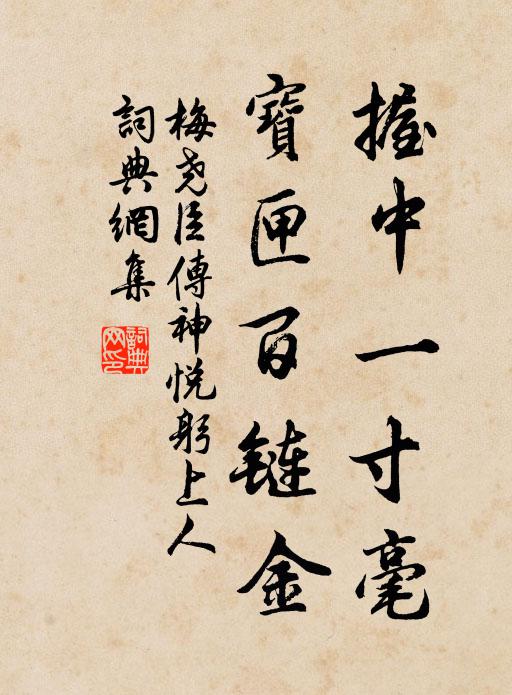 握中一寸毫
寶匣百鏈金
梅尧臣傳神悦躬上人
詞典網集
詞典网印